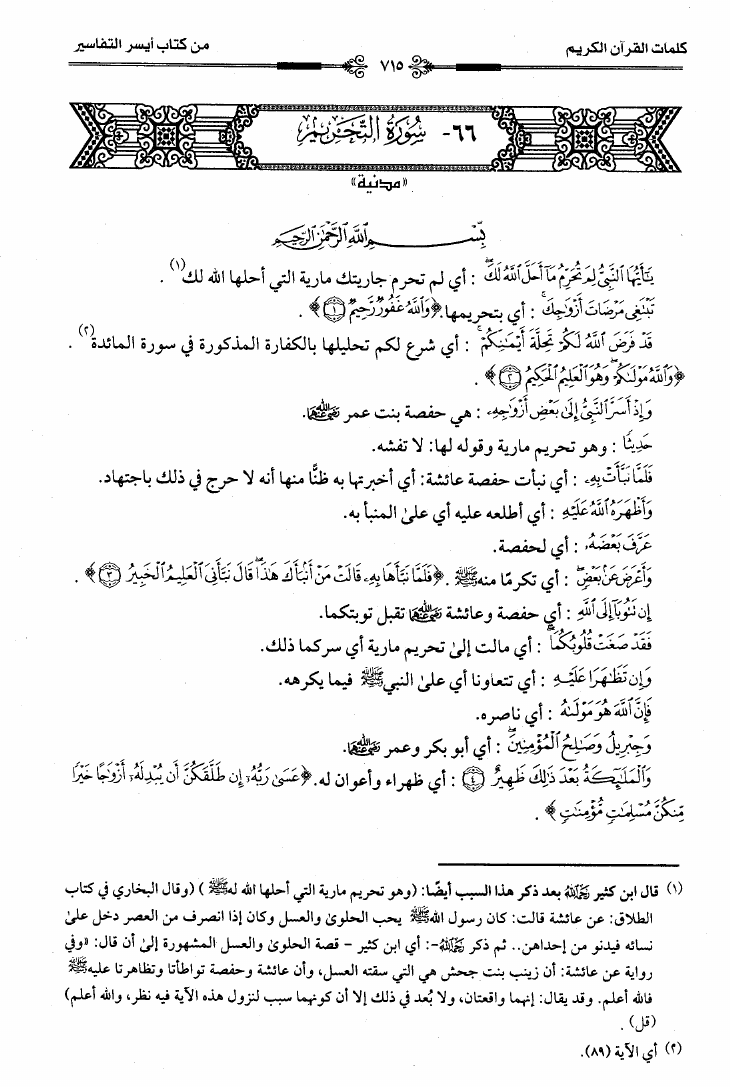 كلمات القرآن الكريم
٧١٥
من كتاب أيسر التفاسير
٦٦- سُورَةُ التَّحْرِيمِ
«مدنية»
بِسْمِ اللَّهِ الرَّحْمَٰنِ الرَّحِيمِ
يَٰٓأَيُّهَا ٱلنَّبِيُّ لِمَ تُحَرِّمُ مَآ أَحَلَّ ٱللَّهُ لَكَۖ : أي لم تحرم جاريتك مارية التي أحلها الله لك(١) .
تَبْتَغِي مَرْضَاتَ أَزْوَٰجِكَۚ : أي بتحريمها.﴿وَٱللَّهُ غَفُورٞ رَّحِيمٞ ١﴾ .
قَدْ فَرَضَ ٱللَّهُ لَكُمْ تَحِلَّةَ أَيْمَٰنِكُمْۚ : أي شرع لكم تحليلها بالكفارة المذكورة في سورة المائدة(٢) .
﴿وَٱللَّهُ مَوْلَىٰكُمْۖ وَهُوَ ٱلْعَلِيمُ ٱلْحَكِيمُ ٢﴾ .
وَإِذْ أَسَرَّ ٱلنَّبِيُّ إِلَىٰ بَعْضِ أَزْوَٰجِهِۦ : هي حفصة بنت عمر رضي الله عنهما.
حَدِيثٗا : وهو تحريم مارية وقوله لها: لا تفشه.
فَلَمَّا نَبَّأَتْ بِهِۦ : أي نبأت حفصة عائشة: أي أخبرتها به ظنًّا منها أنه لا حرج في ذلك باجتهاد.
وَأَظْهَرَهُ ٱللَّهُ عَلَيْهِ : أي أطلعه عليه أي علىٰ المنبأ به.
عَرَّفَ بَعْضَهُۥ : أي لحفصة.
وَأَعْرَضَ عَنۢ بَعْضٖۖ : أي تكرمًا منه ﷺ .﴿فَلَمَّا نَبَّأَهَا بِهِۦ قَالَتْ مَنْ أَنۢبَأَكَ هَٰذَاۖ قَالَ نَبَّأَنِيَ ٱلْعَلِيمُ ٱلْخَبِيرُ ٣﴾ .
إِن تَتُوبَآ إِلَى ٱللَّهِ : أي حفصة وعائشة رضي الله عنهما تقبل توبتكما.
فَقَدْ صَغَتْ قُلُوبُكُمَاۖ : أي مالت إلىٰ تحريم مارية أي سركما ذلك.
وَإِن تَظَٰهَرَا عَلَيْهِ : أي تتعاونا أي علىٰ النبي ﷺ فيما يكرهه.
فَإِنَّ ٱللَّهَ هُوَ مَوْلَىٰهُ : أي ناصره.
وَجِبْرِيلُ وَصَٰلِحُ ٱلْمُؤْمِنِينَۖ : أي أبو بكر وعمر رضي الله عنهما.
وَٱلْمَلَٰٓئِكَةُ بَعْدَ ذَٰلِكَ ظَهِيرٌ ٤ : أي ظهراء وأعوان له.﴿عَسَىٰ رَبُّهُۥٓ إِن طَلَّقَكُنَّ أَن يُبْدِلَهُۥٓ أَزْوَٰجًا خَيْرٗا
مِّنكُنَّ مُسْلِمَٰتٖ مُّؤْمِنَٰتٖ﴾ .
(١) قال ابن كثير رحمه الله بعد ذكر هذا السبب أيضًا: (وهو تحريم مارية التي أحلها الله له ﷺ ) (وقال البخاري في كتاب
الطلاق: عن عائشة قالت: كان رسول الله ﷺ يحب الحلوىٰ والعسل وكان إذا انصرف من العصر دخل علىٰ
نسائه فيدنو من إحداهن.. ثم ذكر رحمه الله -: أي ابن كثير - قصة الحلوىٰ والعسل المشهورة إلىٰ أن قال: «وفي
رواية عن عائشة: أن زينب بنت جحش هي التي سقته العسل، وأن عائشة وحفصة تواطأتا وتظاهرتا عليه ﷺ
فالله أعلم. وقد يقال: إنهما واقعتان، ولا بُعد في ذلك إلا أن كونهما سبب لنزول هذه الآية فيه نظر، والله أعلم)
(قل) .
(٢) أي الآية (٨٩).